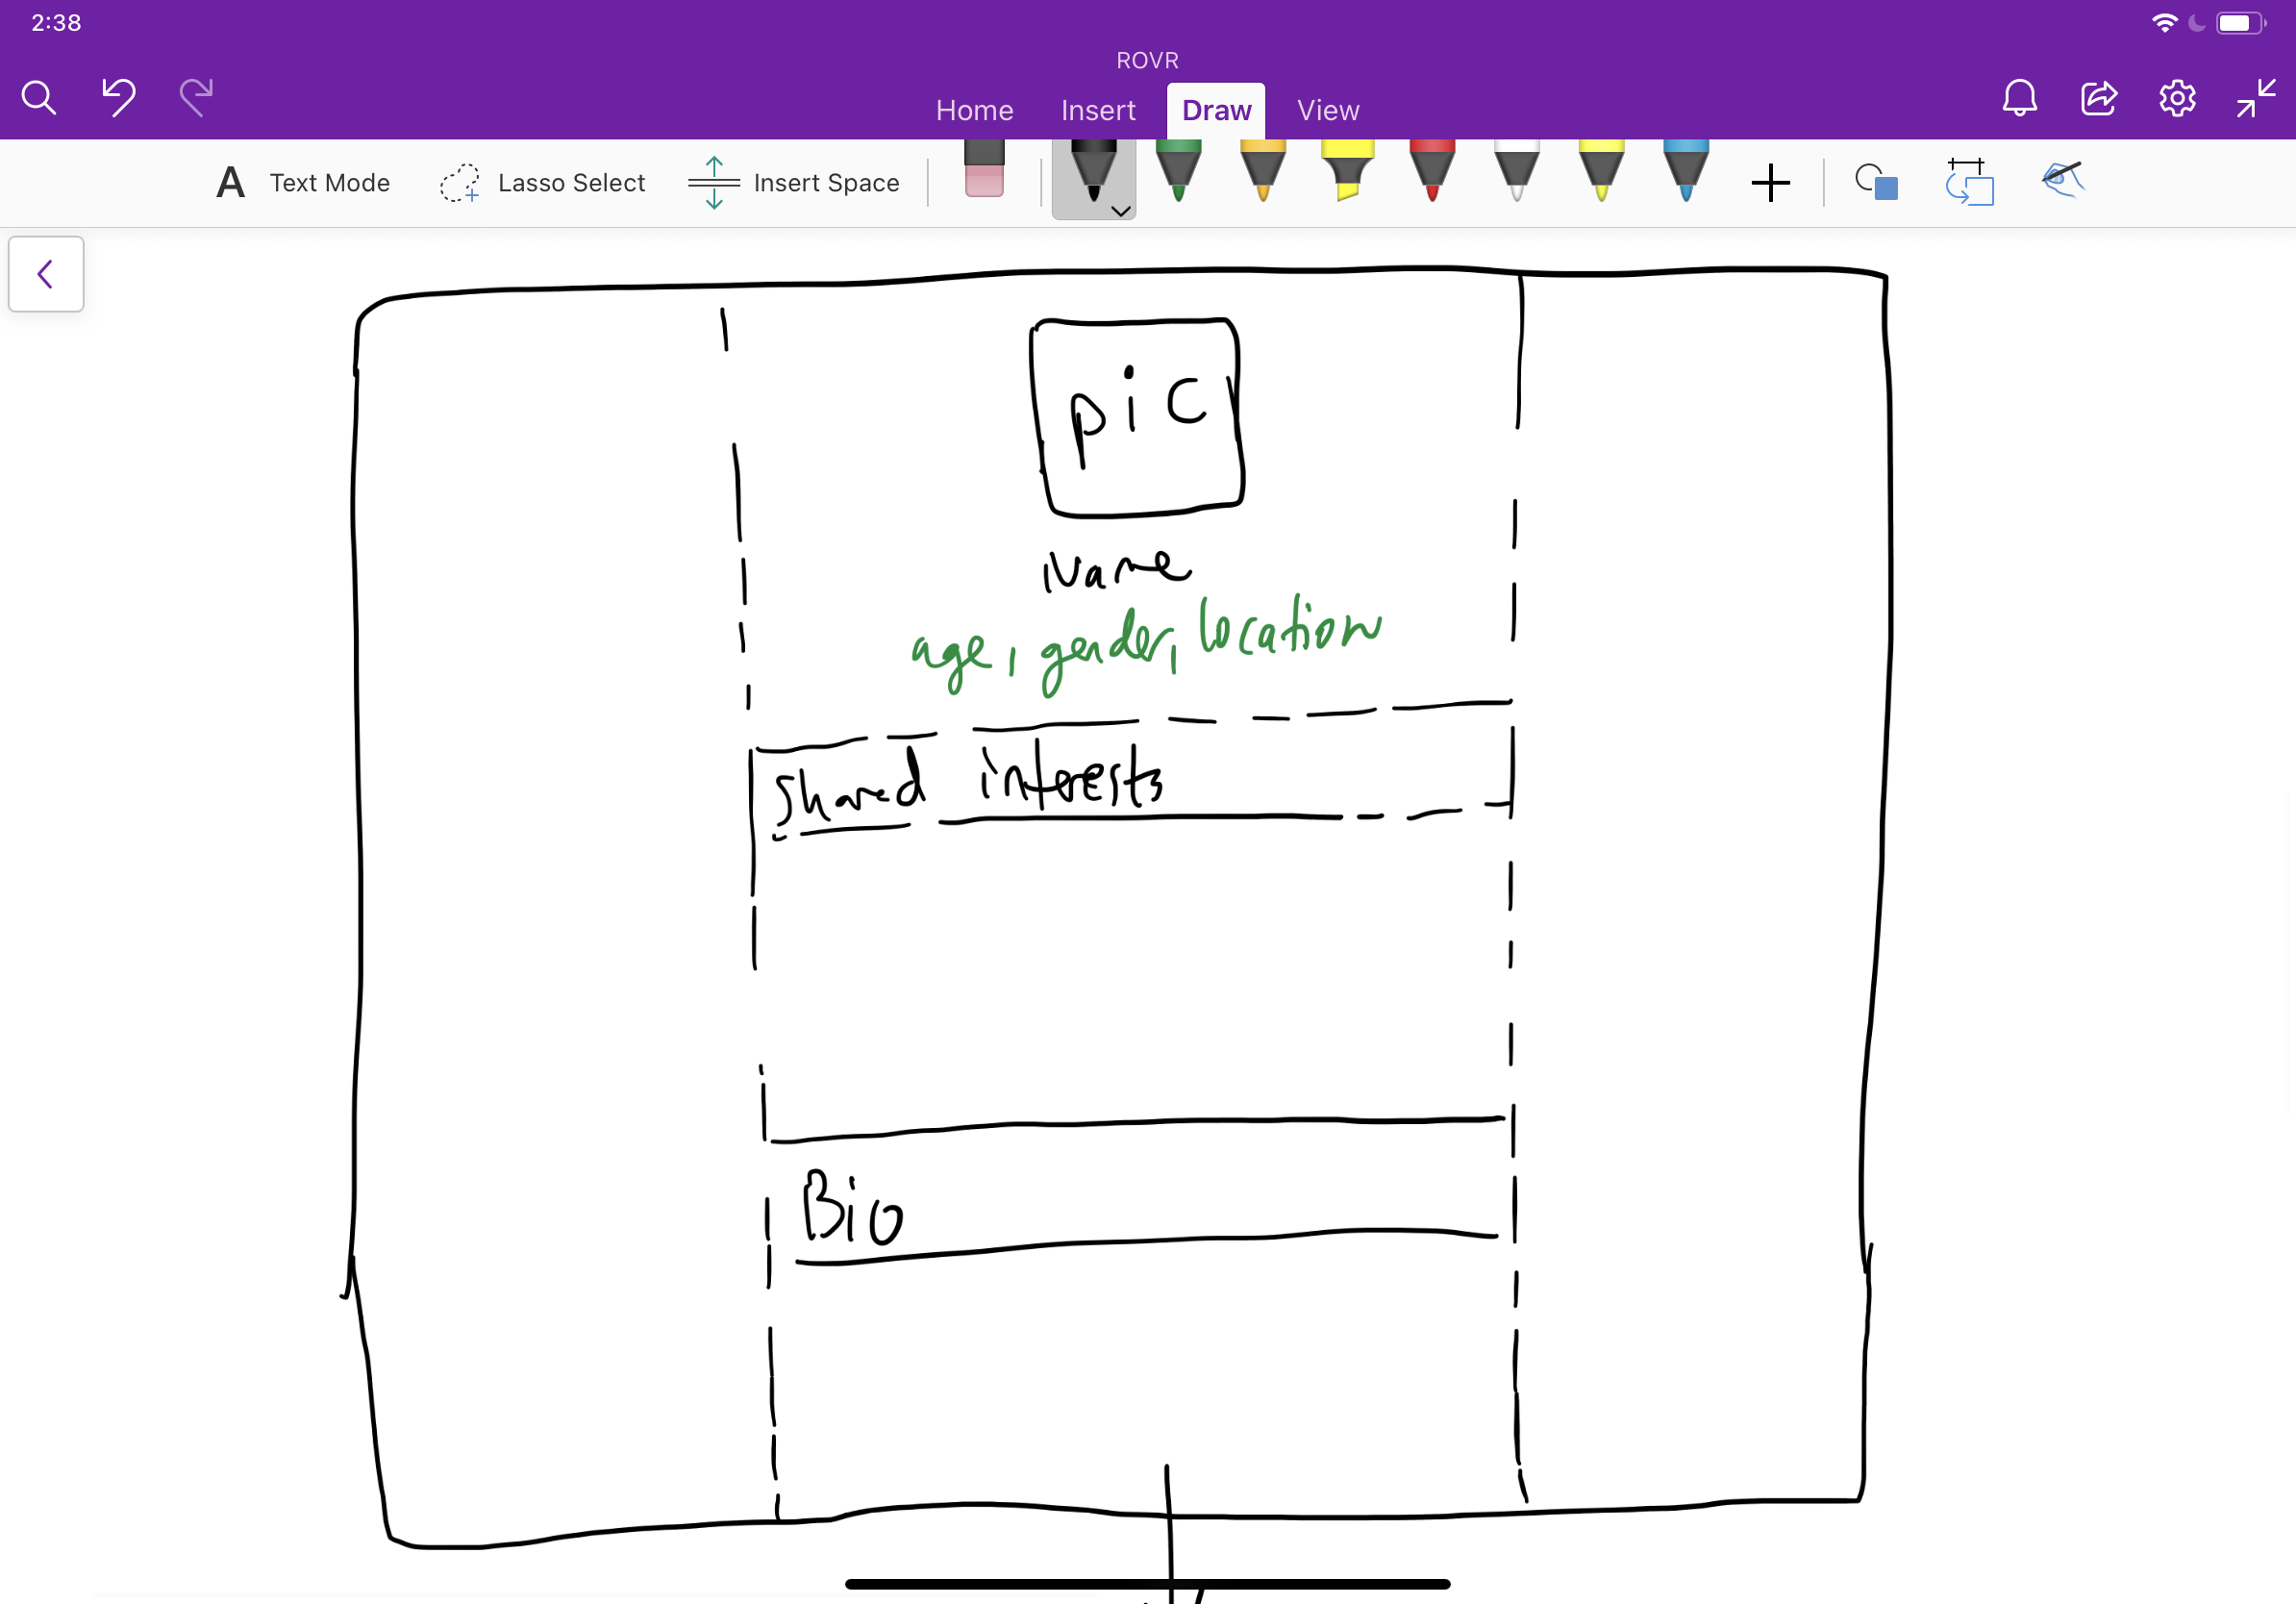 2:38
ROVR
Home Insert Draw View
A Text Mode Lasso Select Insert Space
pic
Name
age, gender, location
shared interests
Bio